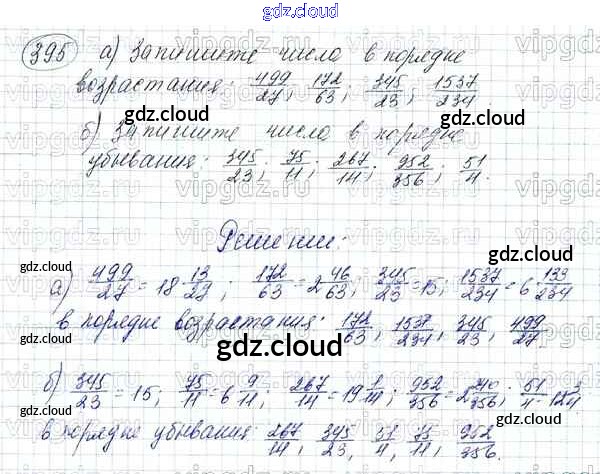 gdz.cloud
395 а) Запишите число в порядке
возрастания: 499/27; 172/63; 345/23; 1537/234.
gdz.cloud
б) Запишите числа в порядке
убывания: 345/23; 75/11; 267/14; 952/356; 51/4.
gdz.cloud
Решение:
gdz.cloud
а) 499/27 = 18 13/27; 172/63 = 2 46/63; 345/23 = 15; 1537/234 = 6 133/234
в порядке возрастания: 172/63, 1537/234, 345/23, 499/27
gdz.cloud
б) 345/23 = 15; 75/11 = 6 9/11; 267/14 = 19 1/14; 952/356 = 2 240/356; 51/4 = 12 3/4
в порядке убывания: 267/14, 345/23, 51/4, 75/11, 952/356.
gdz.cloud